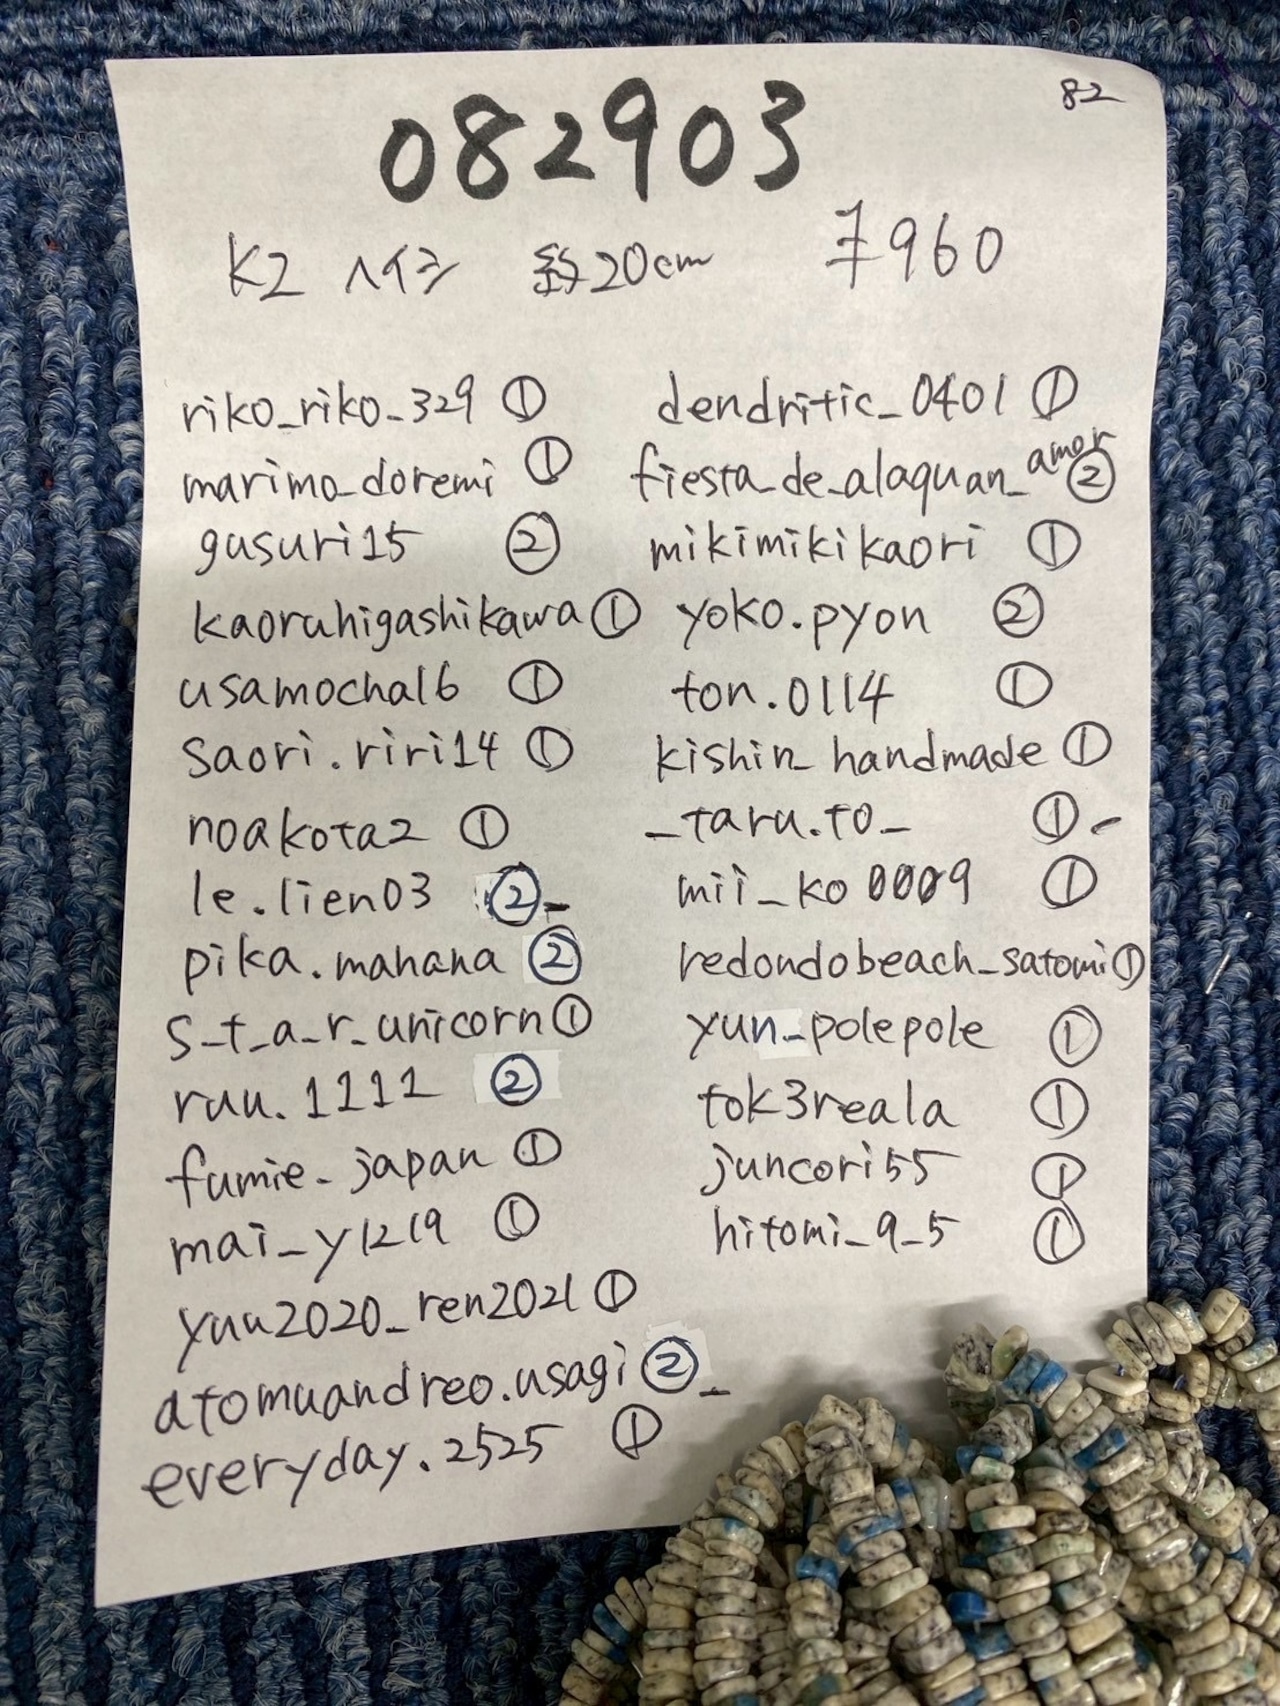 82
082903
K2 ヘイシ 約20cm ¥960
riko_riko_329 ①
marimo_doremi ①
gusuri15 ②
kaoruhigashikawa ①
usamocha16 ①
saori.riri14 ①
noakota2 ①
le.lien03 ②-
pika.mahana ②
s_t_a_r_unicorn ①
ruu.1111 ②
fumie_japan ①
mai_y1219 ①
yuu2020_ren2021 ①
atomuandreo.usagi ②-
everyday.2525 ①
dendritic_0401 ①
fiesta_de_alaquan_amor ②
mikimikikaori ①
yoko.pyon ②
ton.0114 ①
kishin_handmade ①
_taru.to_ ①-
mii_ko0009 ①
redondobeach_satomi ①
yun_polepole ①
tok3reala ①
juncori55 ①
hitomi_9_5 ①